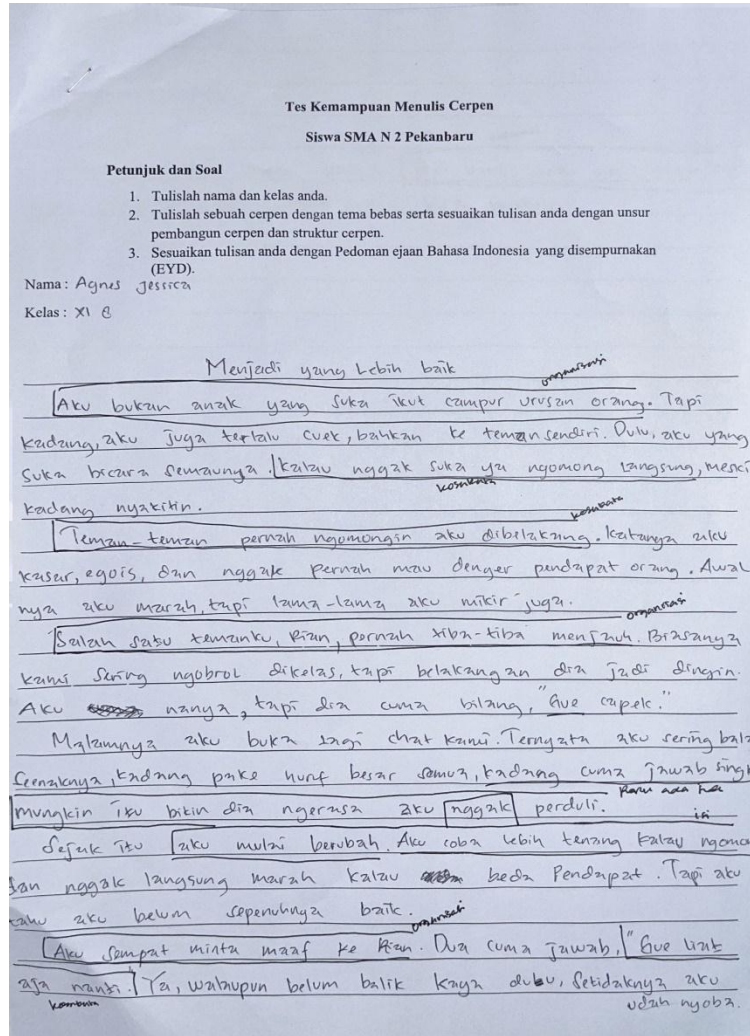 Tes Kemampuan Menulis Cerpen
Siswa SMA N 2 Pekanbaru
Petunjuk dan Soal
1. Tulislah nama dan kelas anda.
2. Tulislah sebuah cerpen dengan tema bebas serta sesuaikan tulisan anda dengan unsur
pembangun cerpen dan struktur cerpen.
3. Sesuaikan tulisan anda dengan Pedoman ejaan Bahasa Indonesia yang disempurnakan
(EYD).
Nama : Agnes Jessica
Kelas : XI
Menjadi yang Lebih baik
organisasi
Aku bukan anak yang suka ikut campur urusan orang. Tapi
kadang, aku juga terlalu cuek, bahkan ke teman sendiri. Dulu, aku yang
suka bicara semaunya. Kalau nggak suka ya ngomong langsung, meski
kosakata
kadang nyakitin.
kosakata
Teman-teman pernah ngomongin aku dibelakang. Katanya aku
kasar, egois, dan nggak pernah mau denger pendapat orang. Awal
nya aku marah, tapi lama-lama aku mikir juga.
organisasi
Salah satu temanku, Rian, pernah tiba-tiba menjauh. Biasanya
kami sering ngobrol dikelas, tapi belakangan dia jadi dingin.
Aku nanya, tapi dia cuma bilang, "Gue capek."
Malamnya aku buka lagi chat kami. Ternyata aku sering bala
Seenaknya, kadang pake huruf besar semua, kadang cuma jawab singk
mungkin itu bikin dia ngerasa aku nggak perduli.
isi
Sejak itu aku mulai berubah. Aku coba lebih tenang kalau ngomo
dan nggak langsung marah kalau beda Pendapat. Tapi aku
tahu aku belum sepenuhnya baik.
organisasi
Aku sempat minta maaf ke Rian. Dua cuma jawab, "Gue liat
aja nanti. Ya, walaupun belum balik kaya dulu, Setidaknya aku
udah nyoba.